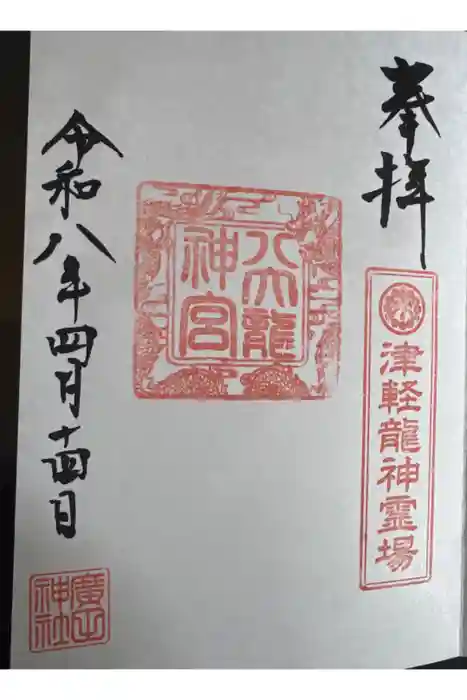 奉拝
津軽龍神霊場
八大龍
神宮
令和八年四月十四日
廣田
神社